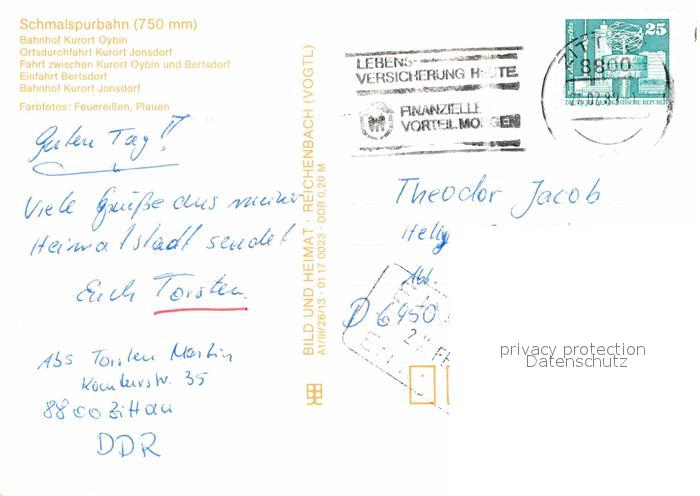 Schmalspurbahn (750 mm)
Bahnhof Kurort Oybin
Ortsdurchfahrt Kurort Jonsdorf
Fahrt zwischen Kurort Oybin und Bertsdorf
Einfahrt Bertsdorf
Bahnhof Kurort Jonsdorf
Farbfotos: Feuereißen, Plauen
Guten Tag!
Viele Grüße aus meiner
Heimatstadt sendet
Euch Torsten.
Abs Torsten Martin
35
8800 Zittau
DDR
BILD UND HEIMAT · REICHENBACH (VOGTL)
A1/III/26/13 · 01 17 0023 · DDR 0,20 M
LEBENS-
VERSICHERUNG HEUTE
FINANZIELLE
VORTEIL MORGEN
25
8800
DEUTSCHE DEMOKRATISCHE REPUBLIK
Theodor Jacob
Abb.
D-6450
privacy protection
Datenschutz